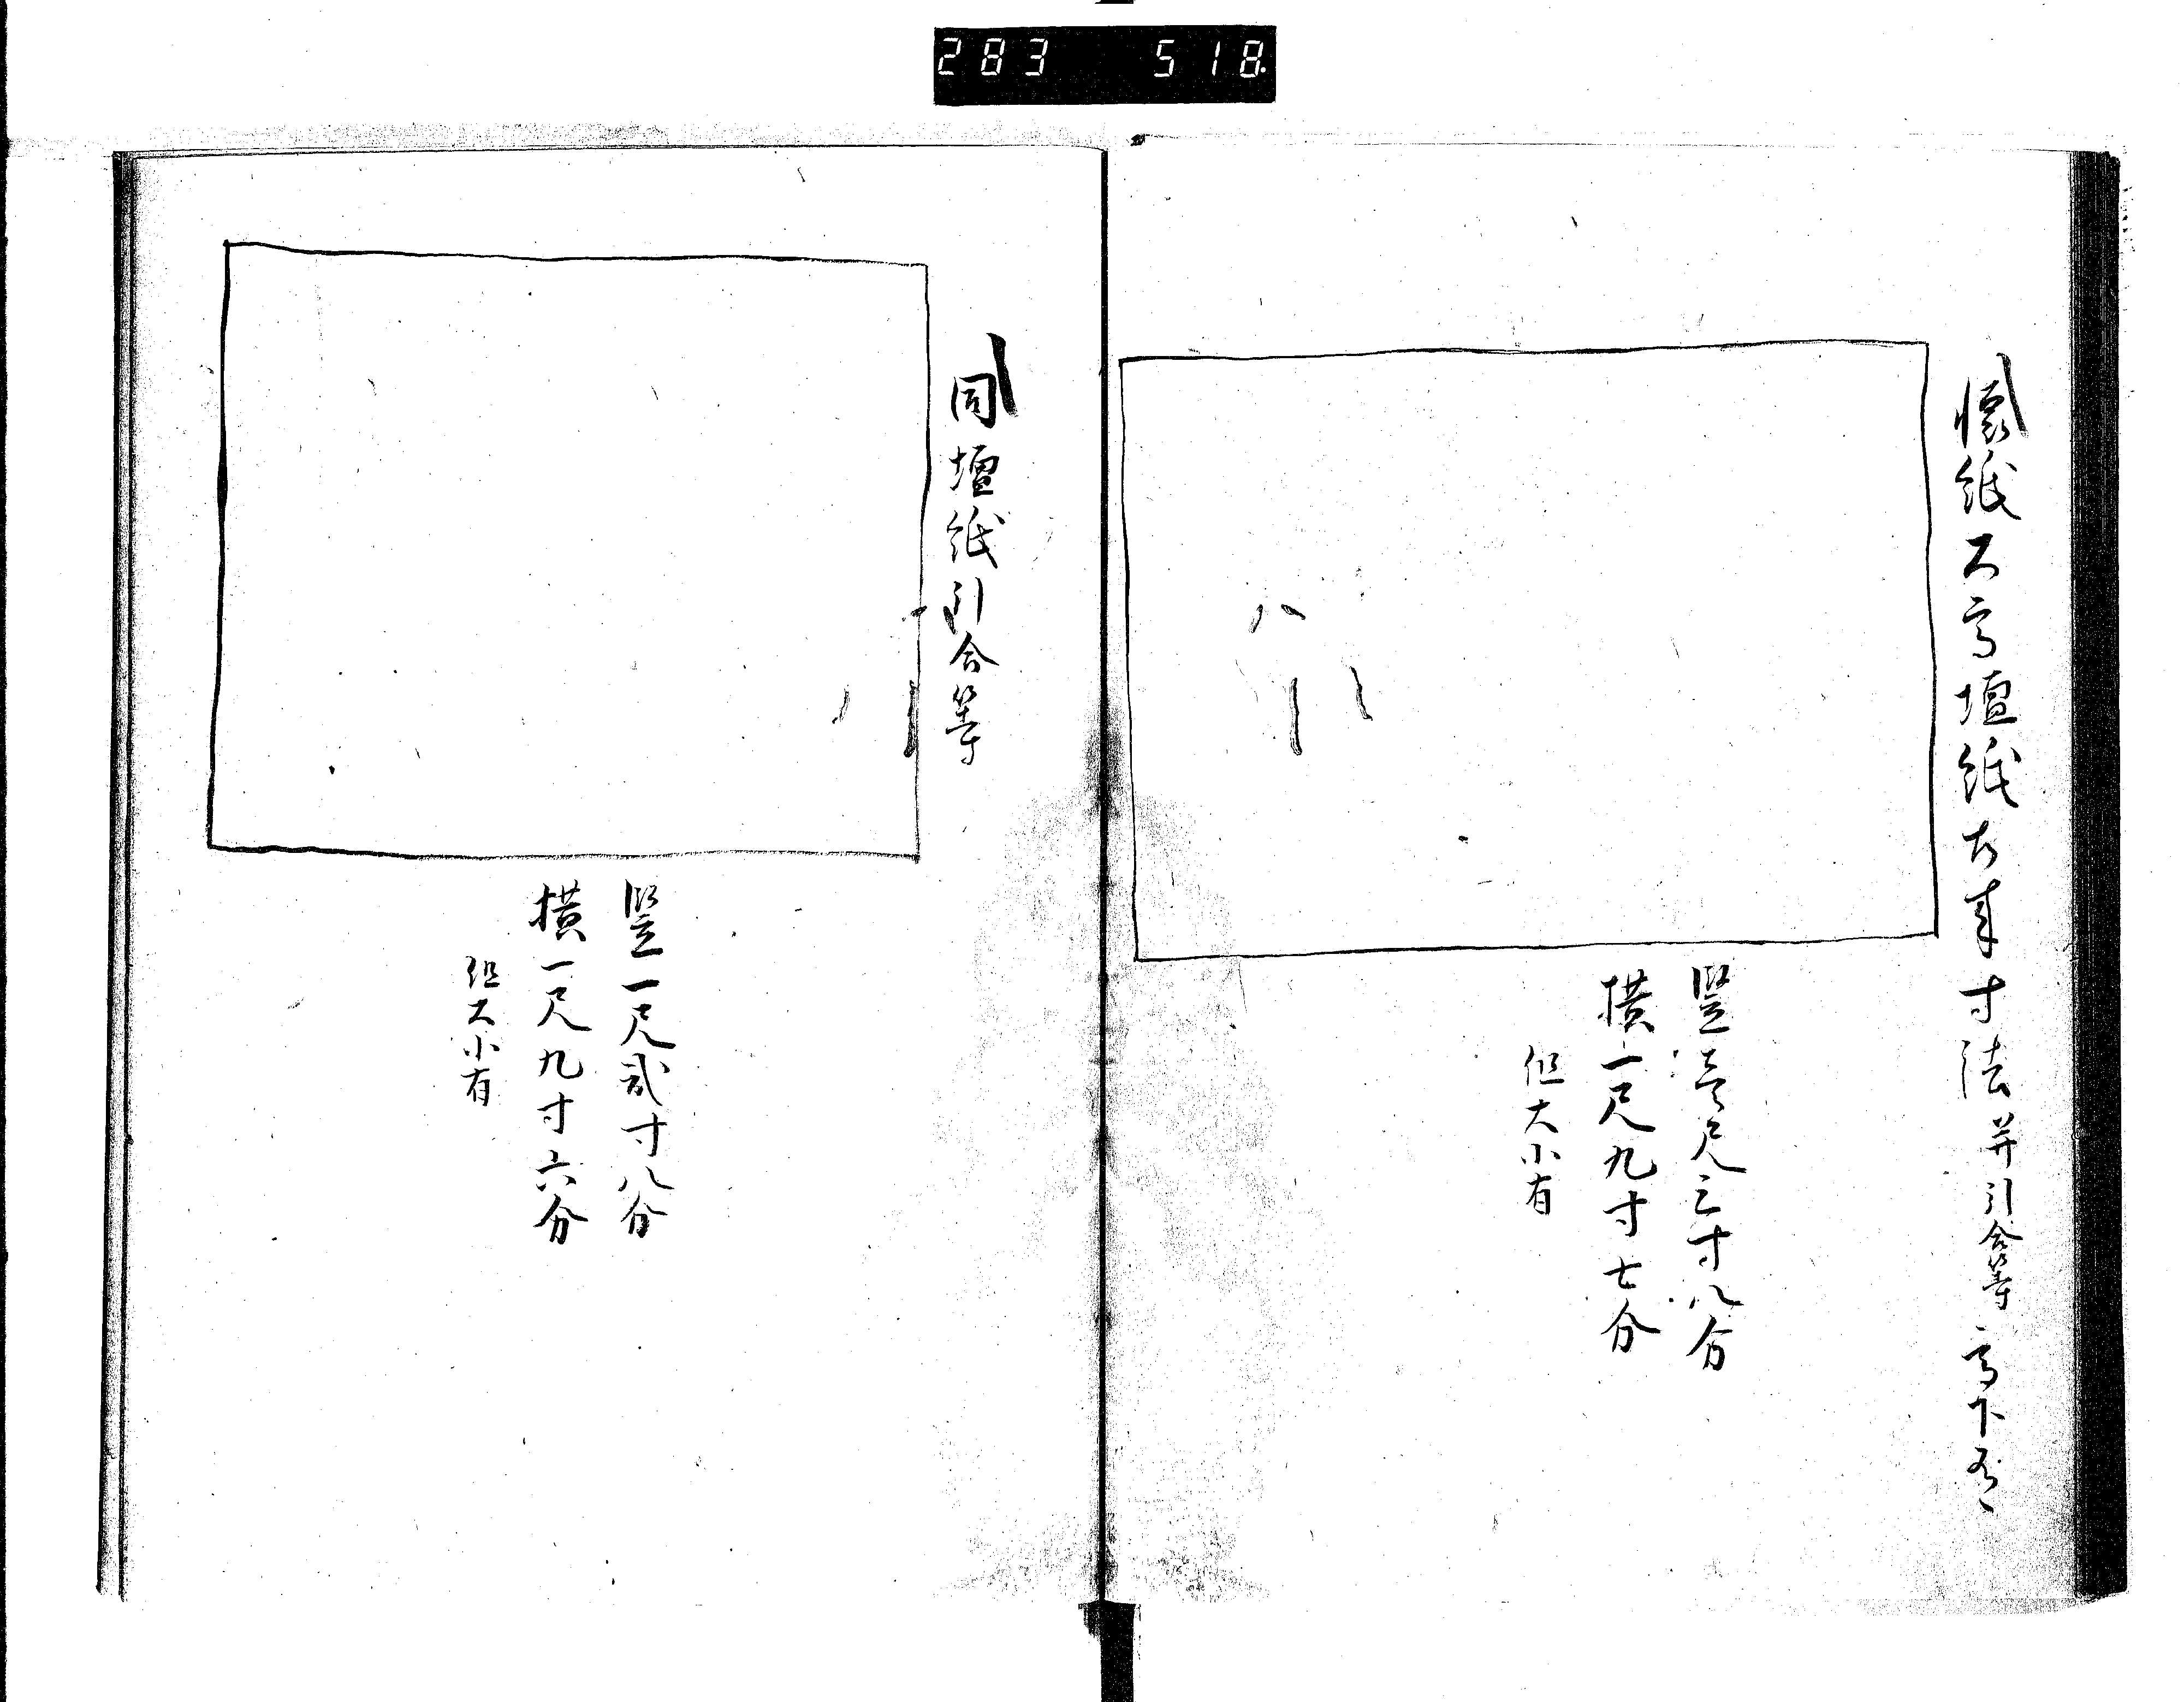 283 518
懐紙大高壇紙 寸法并引合等高下有
竪壱尺三寸八分
横一尺九寸七分
但大小有
同壇紙引合等
竪一尺弐寸八分
横一尺九寸六分
但大小有